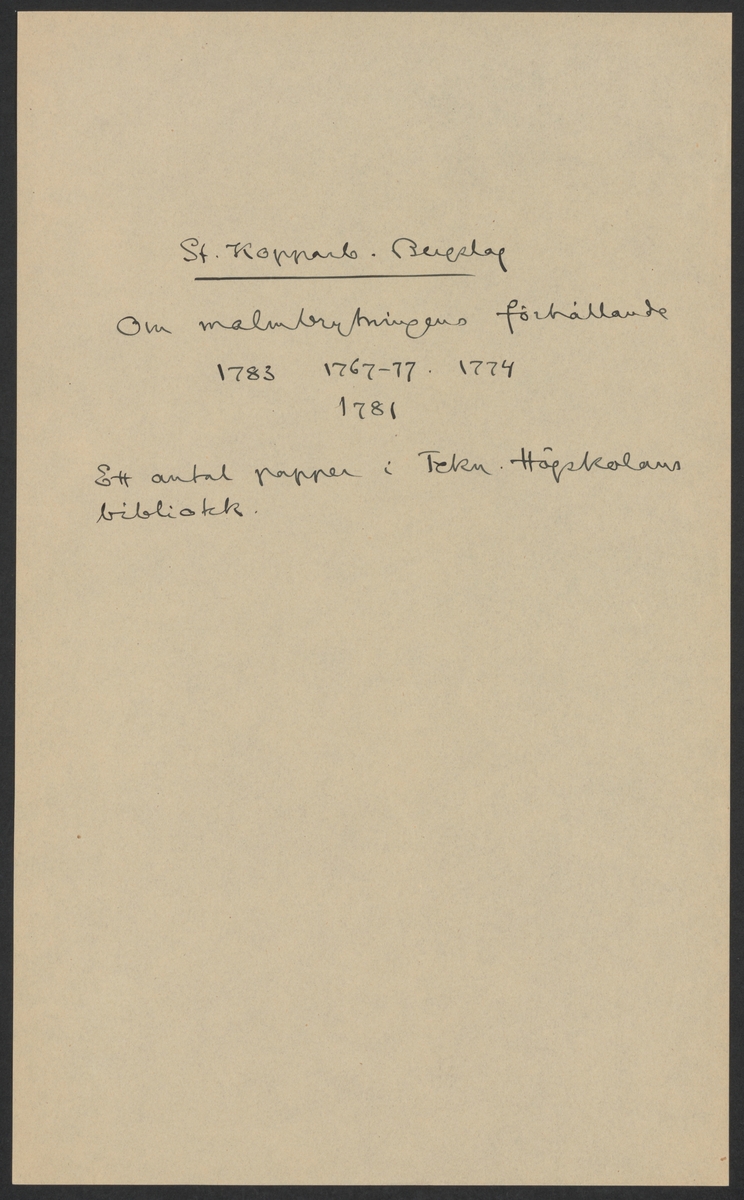 St. Kopparb. Bergslag
Om malmbrytningens förhållande
1783 1767-77. 1774
1781
Ett antal papper i Tekn. Högskolans
bibliotek.